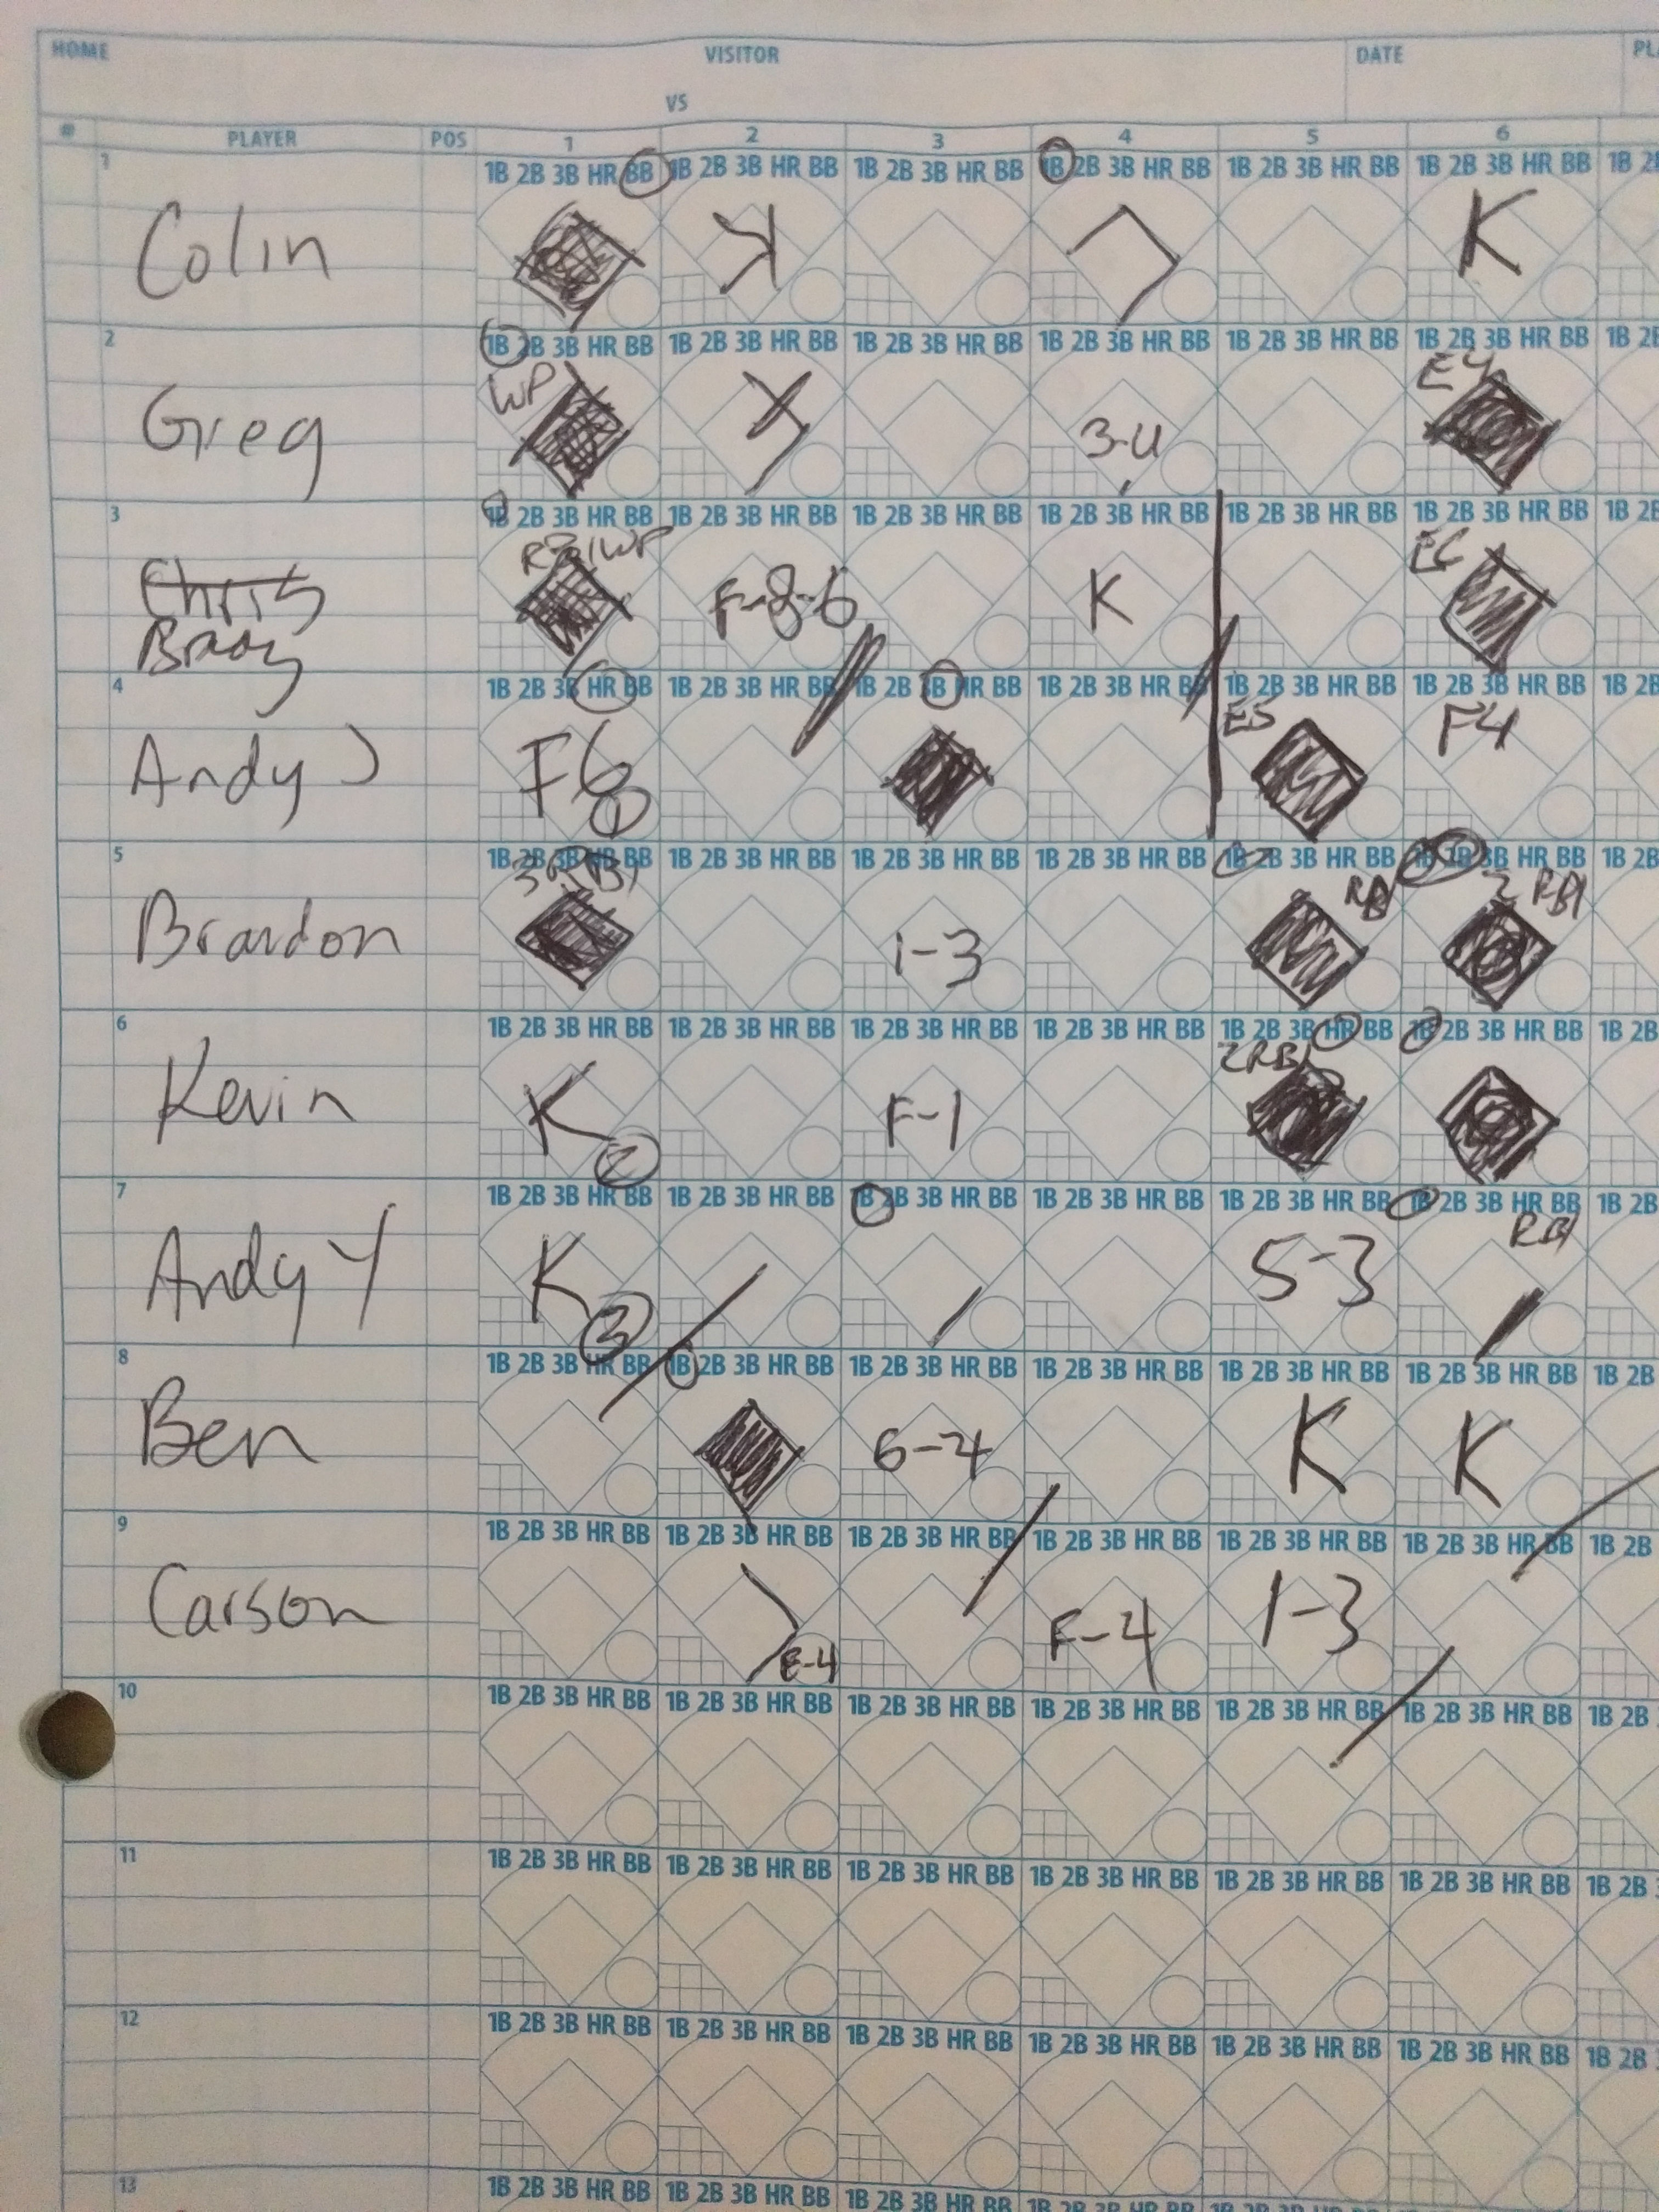 HOME VISITOR DATE
VS
# PLAYER POS 1 2 3 4 5 6
1 1B 2B 3B HR BB 1B 2B 3B HR BB 1B 2B 3B HR BB 1B 2B 3B HR BB 1B 2B 3B HR BB 1B 2B 3B HR BB 1B
Colin K K
2 1B 2B 3B HR BB 1B 2B 3B HR BB 1B 2B 3B HR BB 1B 2B 3B HR BB 1B 2B 3B HR BB 1B 2B 3B HR BB 1B
WP E4
Greg 3-U
3 1B 2B 3B HR BB 1B 2B 3B HR BB 1B 2B 3B HR BB 1B 2B 3B HR BB 1B 2B 3B HR BB 1B 2B 3B HR BB 1B
WP E6
Chris F-8-6 K
Brady
4 1B 2B 3B HR BB 1B 2B 3B HR BB 1B 2B 3B HR BB 1B 2B 3B HR BB 1B 2B 3B HR BB 1B 2B 3B HR BB 1B
E5 F4
Andy J F6 1
5 1B 2B 3B HR BB 1B 2B 3B HR BB 1B 2B 3B HR BB 1B 2B 3B HR BB 1B 2B 3B HR BB 1B 2B 3B HR BB 1B 2B
3RBI RBI 2 RBI
Brandon 1-3
6 1B 2B 3B HR BB 1B 2B 3B HR BB 1B 2B 3B HR BB 1B 2B 3B HR BB 1B 2B 3B HR BB 1B 2B 3B HR BB 1B 2B
2RBI
Kevin K 2 F-1
7 1B 2B 3B HR BB 1B 2B 3B HR BB 1B 2B 3B HR BB 1B 2B 3B HR BB 1B 2B 3B HR BB 1B 2B 3B HR BB 1B 2B
RBI
Andy Y K 3 5-3
8 1B 2B 3B HR BB 1B 2B 3B HR BB 1B 2B 3B HR BB 1B 2B 3B HR BB 1B 2B 3B HR BB 1B 2B 3B HR BB 1B 2B
Ben 6-4 K K
9 1B 2B 3B HR BB 1B 2B 3B HR BB 1B 2B 3B HR BB 1B 2B 3B HR BB 1B 2B 3B HR BB 1B 2B 3B HR BB 1B 2B
Carson E-4 F-4 1-3
10 1B 2B 3B HR BB 1B 2B 3B HR BB 1B 2B 3B HR BB 1B 2B 3B HR BB 1B 2B 3B HR BB 1B 2B 3B HR BB 1B 2B
11 1B 2B 3B HR BB 1B 2B 3B HR BB 1B 2B 3B HR BB 1B 2B 3B HR BB 1B 2B 3B HR BB 1B 2B 3B HR BB 1B 2B
12 1B 2B 3B HR BB 1B 2B 3B HR BB 1B 2B 3B HR BB 1B 2B 3B HR BB 1B 2B 3B HR BB 1B 2B 3B HR BB 1B 2B
13 1B 2B 3B HR BB 1B 2B 3B HR BB 1B 2B 3B HR BB